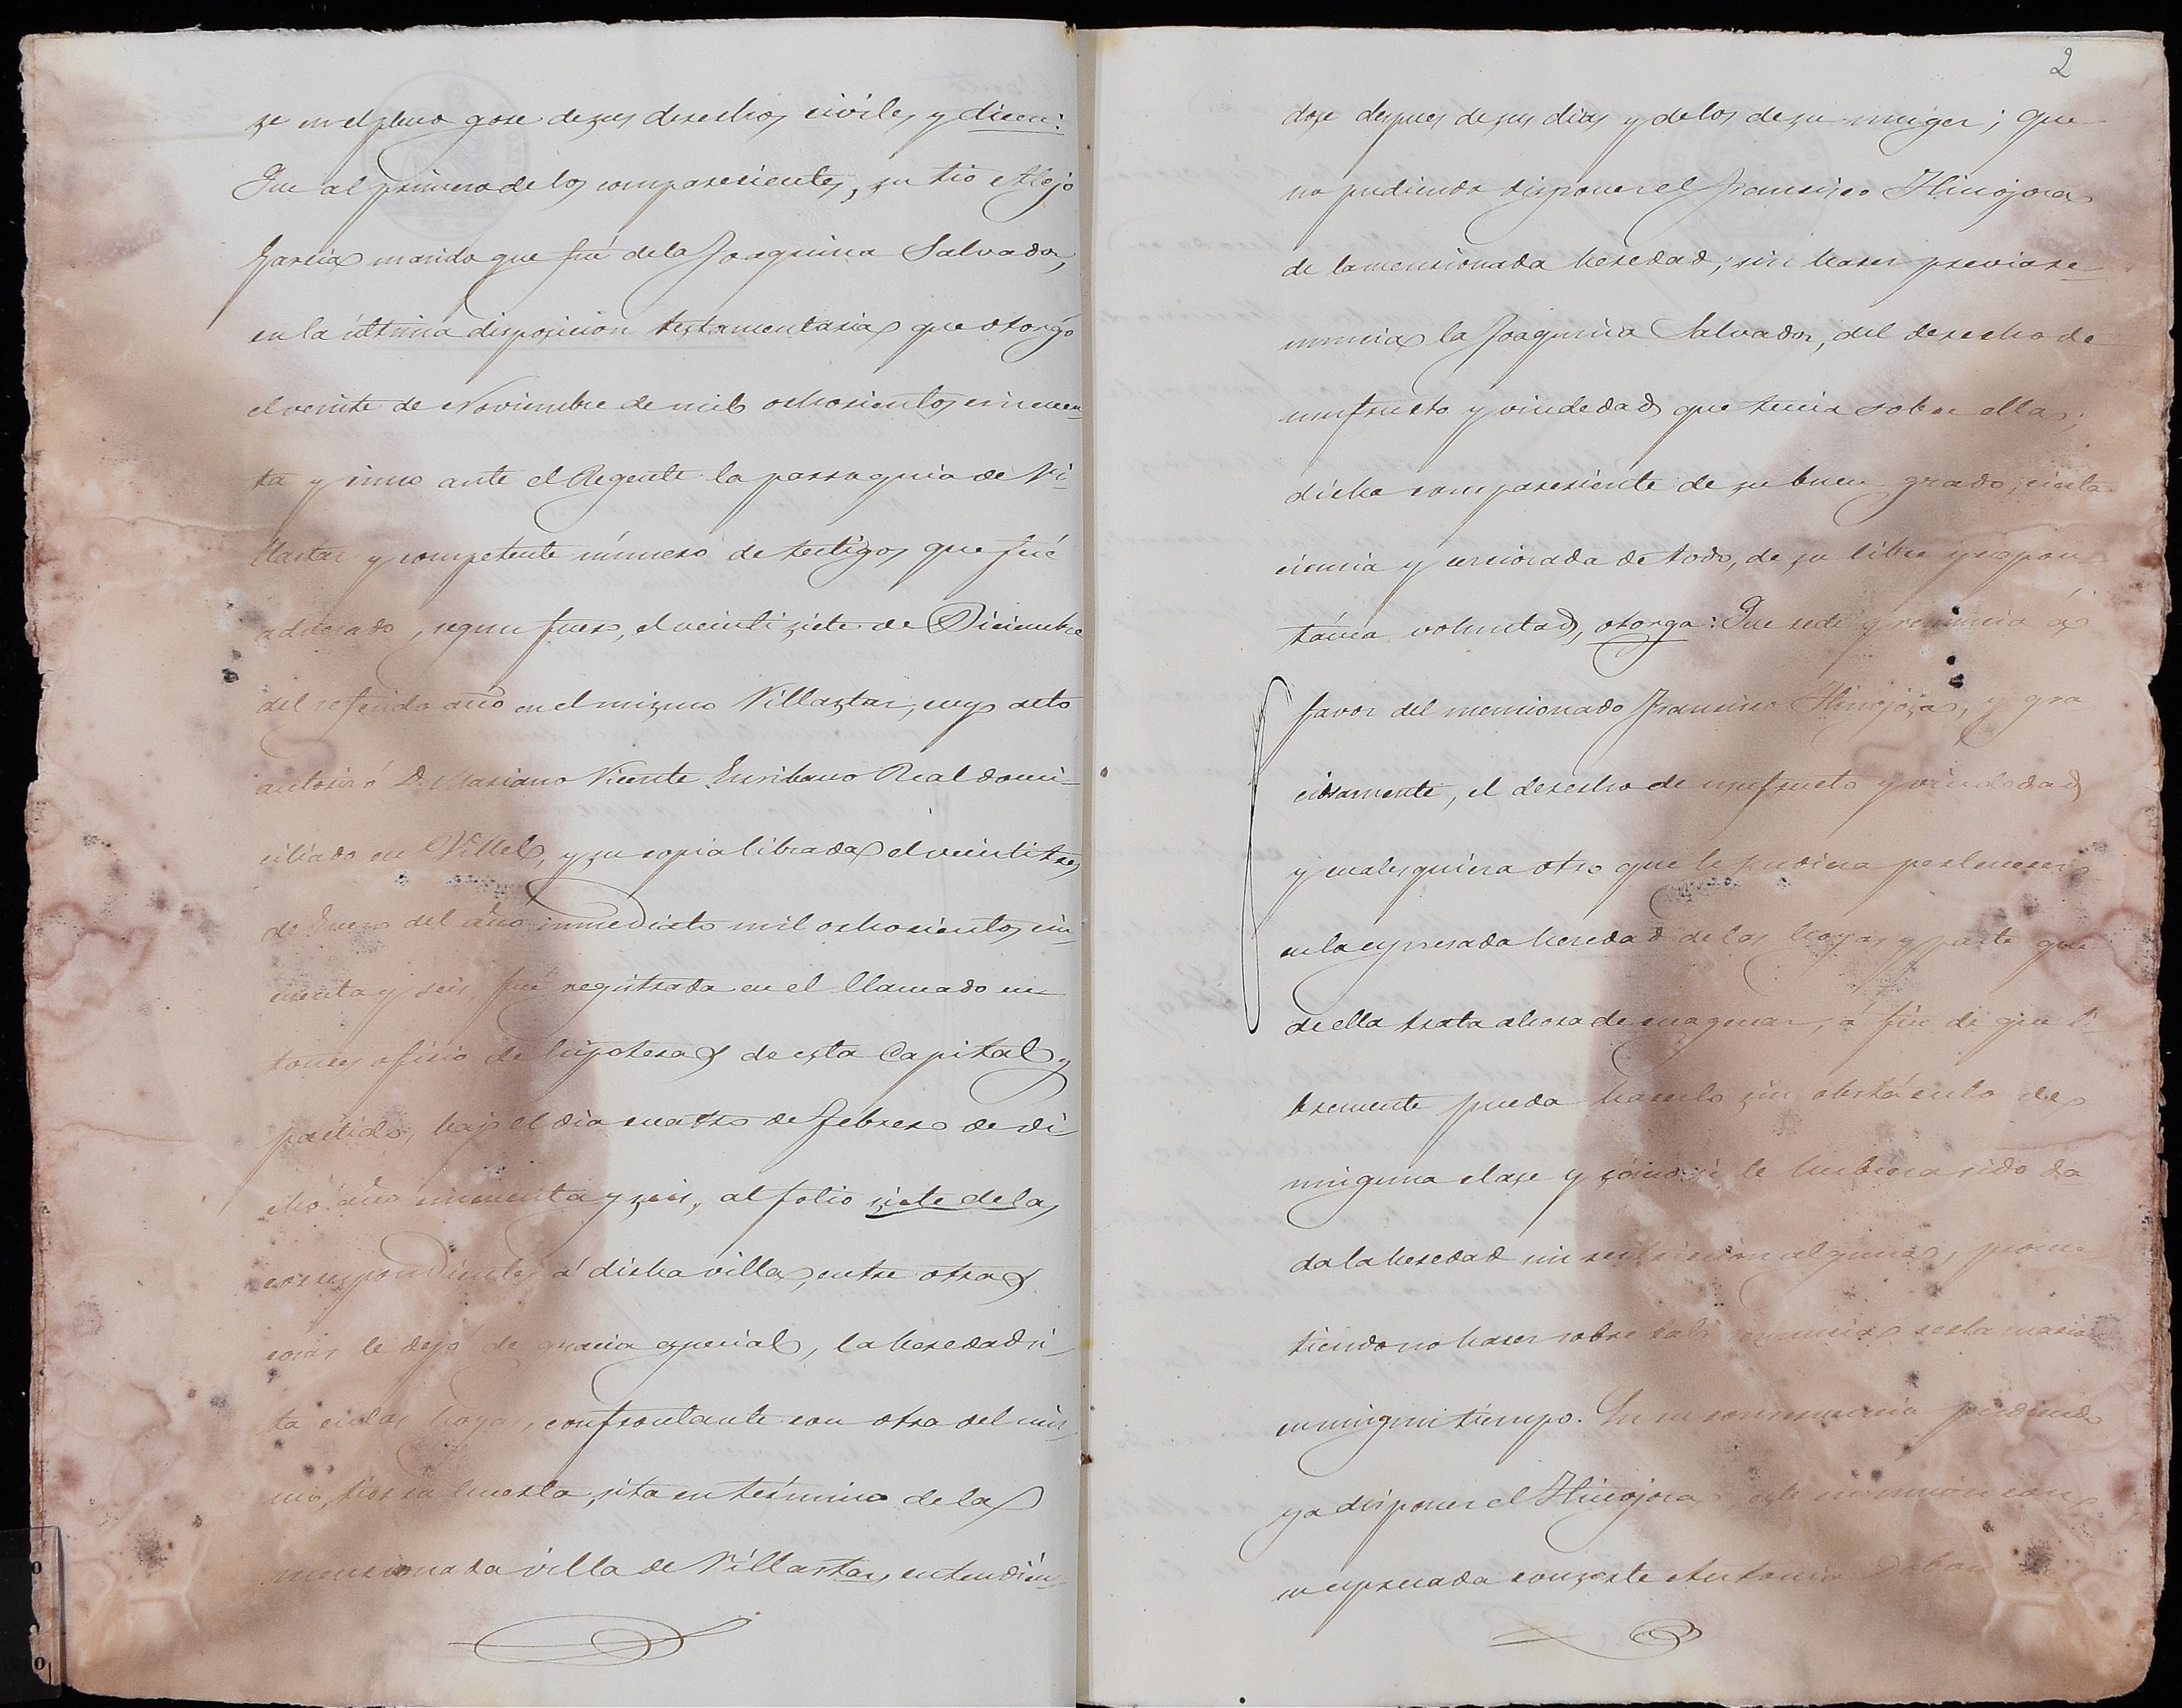 se en el pleno gose de sus desechos civiles y dicen:
Que al primero de los comparesientes, su tio Alejo
Garcia marido que fué de la Joaquina Salvador,
en la última disposicion testamentaria que otorgó
el veinte de Noviembre de mil ochosientos cincuen
ta y cinco ante el Regente la parroquia de Vi-
llastar y competente número de testigos que fué
adverado, segun fuero, el veinti siete de Diciembre
del referido año en el mismo Villastar, cuyo acto
autorizó D. Mariano Vicente Escribano Real domi-
ciliado en Villel, y su copia librada el veintitres
de Enero del año inmediato mil ochosientos cin-
cuenta y seis fué registrada en el llamado en-
tonces oficio de hipotecas de esta Capital y
partido, bajo el dia cuatro de Febrero de di
cho año cincuenta y seis, al folio siete de las
correspondientes á dicha villa, entre otras
cosas le dejó de gracia especial, la heredad si-
ta en las hoyas, confrontante con otra del mis-
mo, tierra huerta, sita en término de la
mencionada villa de Villastar, entendién-
2
dose despues de sus dias y de los de su muger; que
no pudiendo disponer el Francisco Hinojosa
de la mencionada heredad, sin haser previa re-
nuncia la Joaquina Salvador, del derecho de
usufructo y viudedad que tenia sobre ella;
dicha comparesiente de su buen grado, cierta
ciencia y cerciorada de todo, de su libre y espon
tánea voluntad, otorga: Que cede y renuncia á
favor del mencionado Francisco Hinojosa, y gra
ciosamente, el derecho de usufructo y viudedad
y cualesquiera otro que le pudiera perteneser
en la espresada heredad de las hoyas y parte que
de ella trata ahora de enagenar, á fin de que li
bremente pueda haserlo sin obstáculo de
ninguna clase y como si le hubiera sido da
da la heredad sin restricion alguna, prome
tiendo no haser sobre tal renuncia reclamacion
en ningun tiempo. En su consecuencia pudiendo
ya disponer el Hinojosa, este en union con
su espresada consorte Antonia